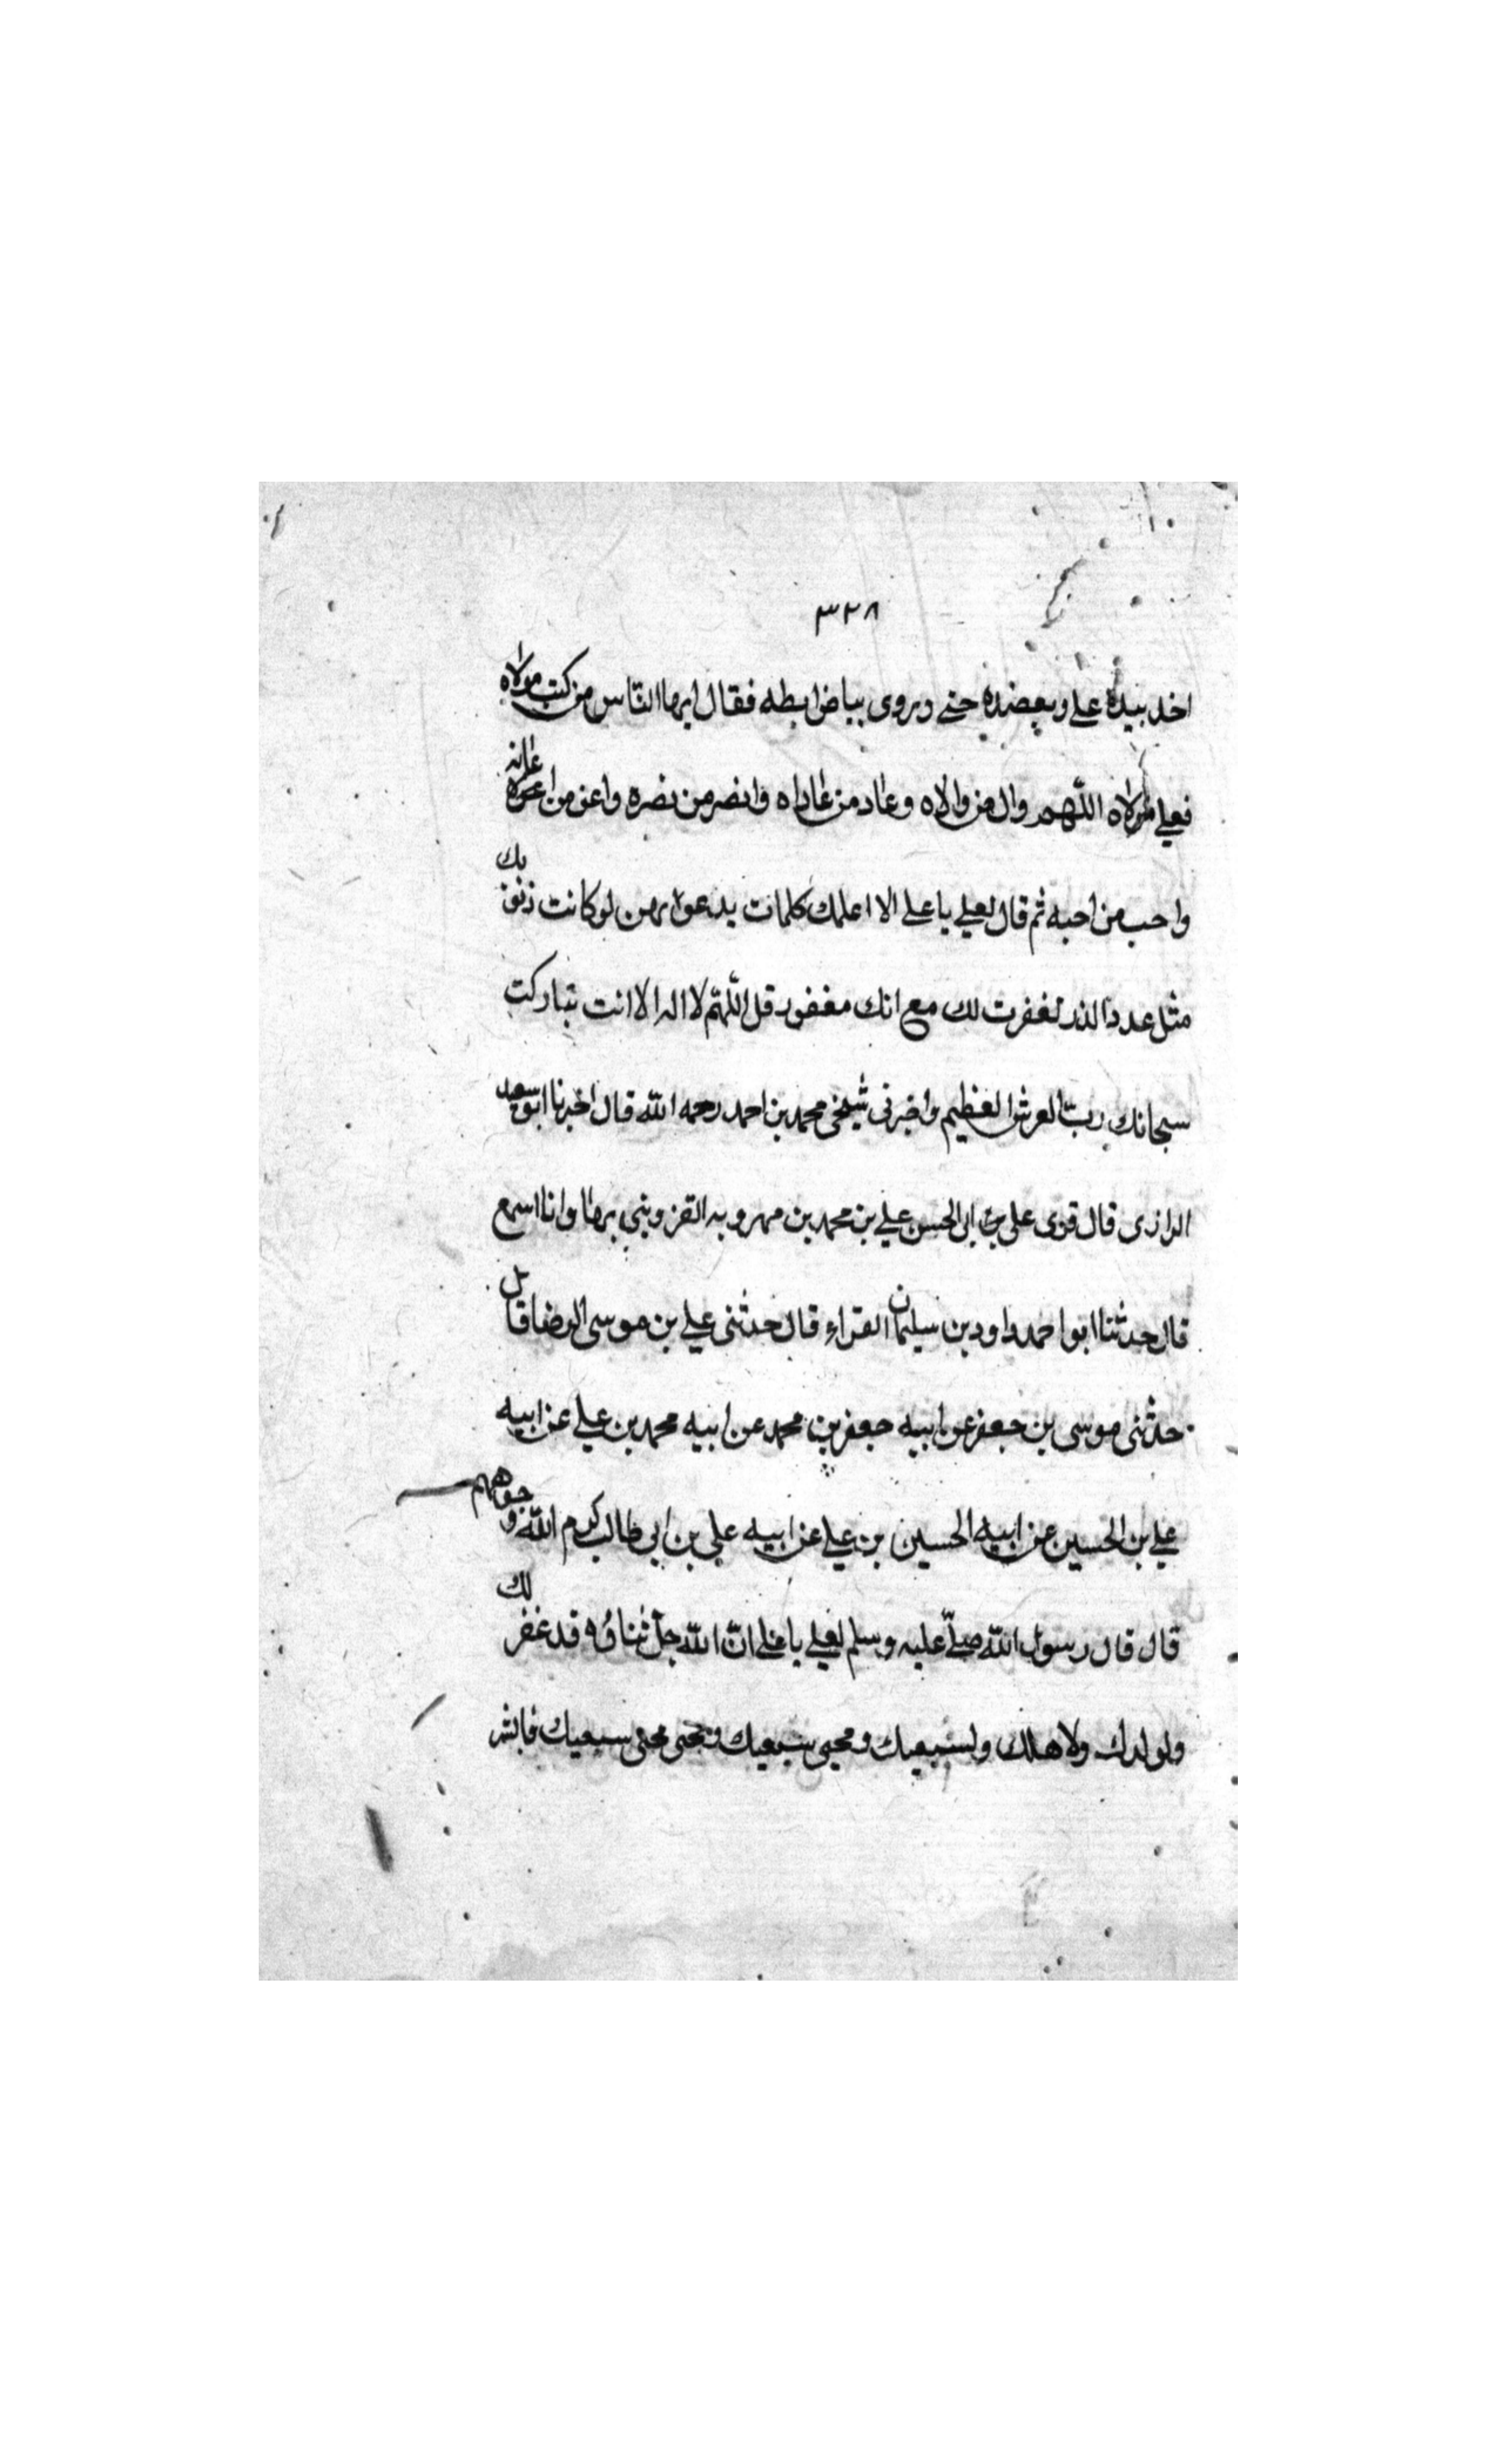 ٣٢٨
اخذ بيده علي وبعضده حتى وروى بياض ابطه فقال ايها الناس من كنت مولاه
فعلي مولاه اللّهم وال من والاه وعاد من عاداه وانصر من نصره واعن من اعانه
واحب من احبه ثم قال لعلي يا علي الا اعلمك كلمات يدعو بهن لو كانت ذنوبك
مثل عدد الذر لغفرت لك مع انك مغفور قل اللّهمّ لا اله الا انت تباركت
سبحانك ربّ العرش العظيم واخبرنى شيخى محمد بن احمد رحمه اللّه قال اخبرنا ابو سعد
الرازى قال قرى على بن ابى الحسن علي بن محمد بن مهرويه القزوينى بها وانا اسمع
قال حدثنا ابو احمد داود بن سليمان الفراء قال حدثنى علي بن موسى الرضا قال
حدثنى موسى بن جعفر عن ابيه جعفر بن محمد عن ابيه محمد بن علي عن ابيه
علي بن الحسين عن ابيه الحسين بن علي عن ابيه علي بن ابي طالب كرم اللّه وجوههم
قال قال رسول اللّه صلّى عليه وسلم لعلي يا علي انّ اللّه جلّ ثناؤه قد غفر لك
ولولدك ولاهلك ولشيعتك ومحبى شيعتك ومحبى محبى شيعتك فابشر